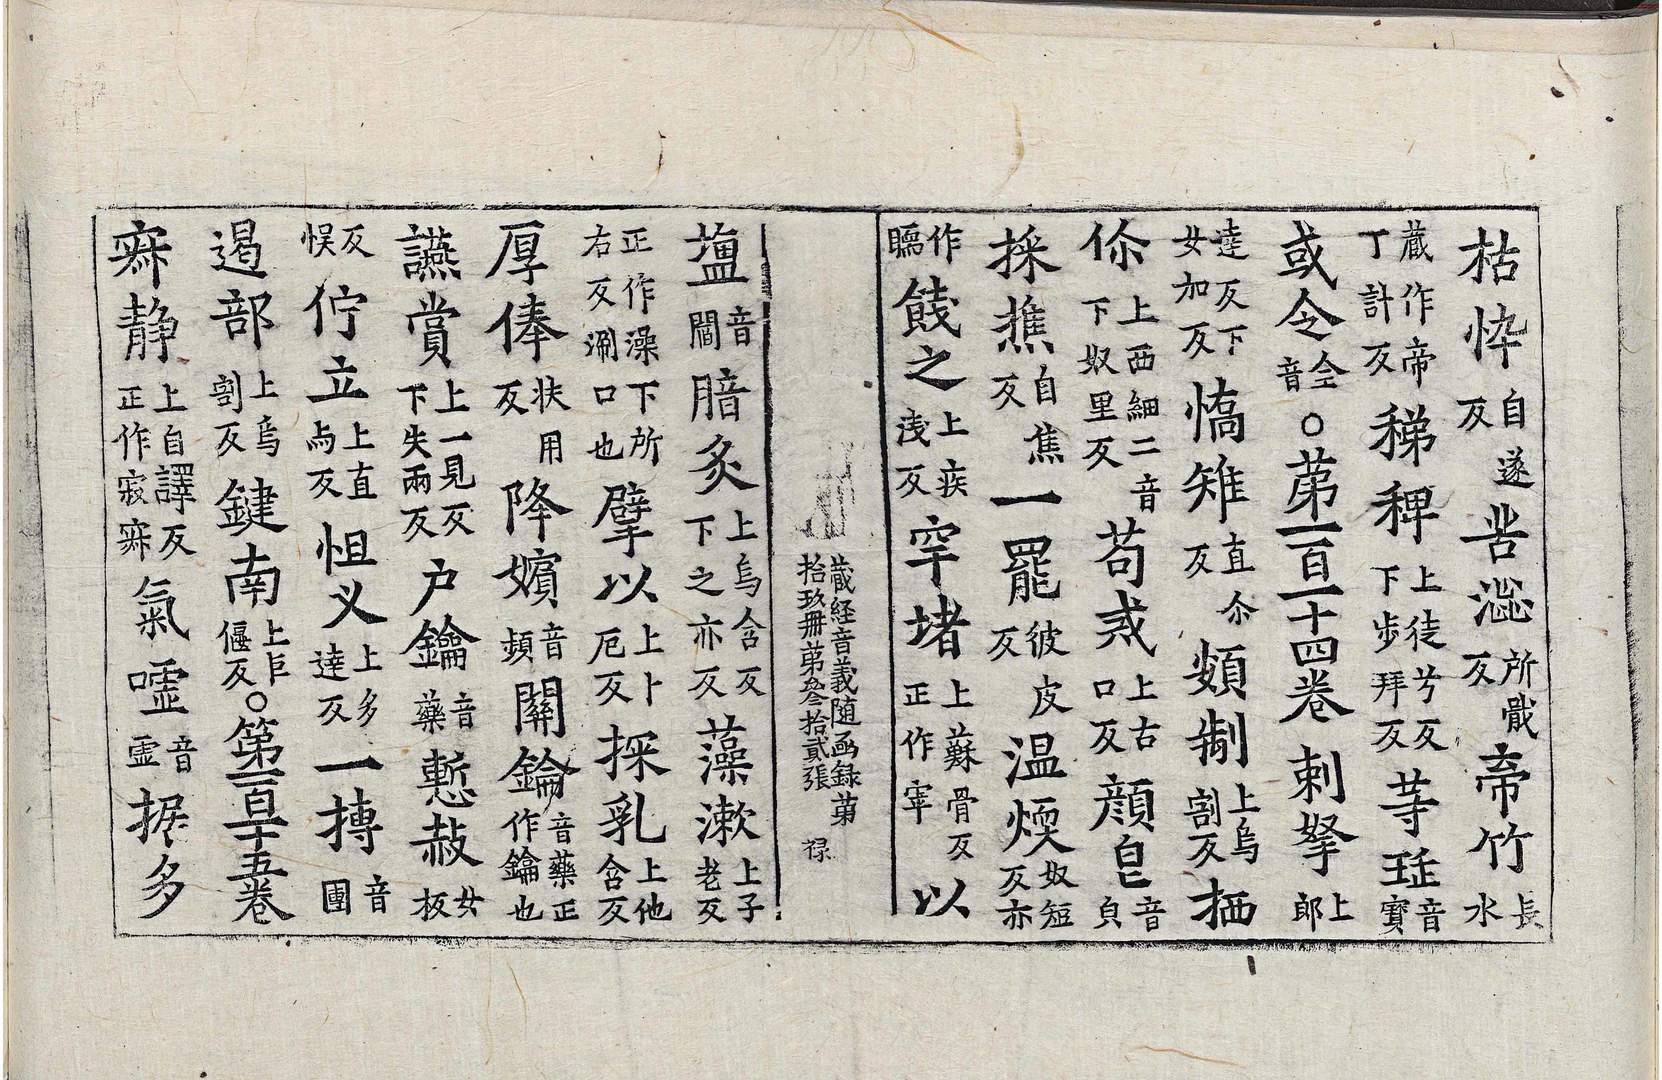 枯忰自遂反 㟴澀所戢反 帝竹長水
藏作帝丁計反 稊稗上徒兮反下步拜反 䓁珽音寶
或令仝音 ○第一百一十四卷 刺拏上郎
達反下女加反 憍雉直尒反 頞制上烏割反 栖
你上西細二音下奴里反 苟或上古口反 顔皃音貌
採撨自焦反 一罷彼皮反 温煗奴短反亦
作臑 餞之上疾淺反 窣堵上蘇骨反正作窣 以
藏経音義随函録第
拾玖冊第叄拾貳張 禄
壛音閻 腤炙上烏含反下之亦反 藻漱上子老反
正作澡下所右反涮口也 擘以上卜厄反 探乳上他含反
厚俸扶用反 降嬪音頻 關鑰音藥正作鑰也
讌賞上一見反下失兩反 户鑰音藥 慙赧女板
反悮 佇立上直与反 怛义上多達反 一摶音團
遏部上烏割反 鍵南上巨偃反○第一百一十五卷
寂静上自譯反正作寂 氣嘘音虚 据多